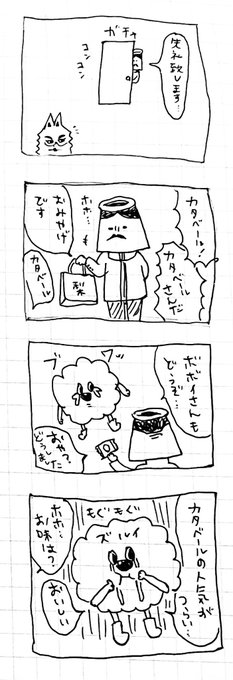 ガチャ
コンコン
失礼致します…
カタベール!
カタベール
さんだ
ホホ…
おみやげ
です
カタベール
梨
ボボイさんも
どうぞ…
ブワッ
おやっ?
どうしました
カタベールの人気が
つらい…
もぐもぐ
ズルイ
ホホ…
お味は?
おいしい